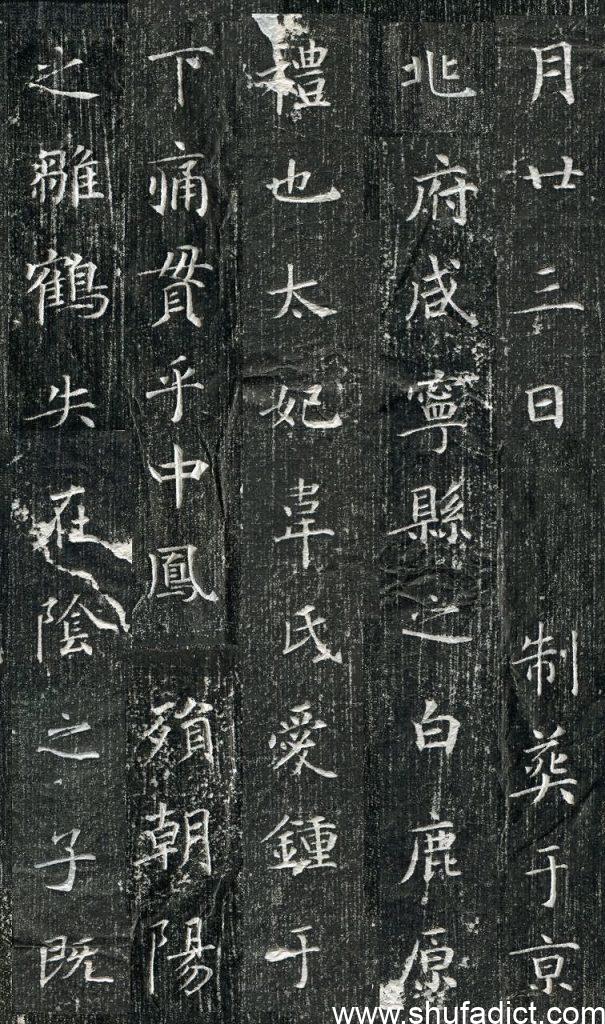 月廿三日 制葬于京
兆府咸寧縣之白鹿原
禮也太妃韋氏愛鍾于
下痛貫乎中鳳殞朝陽
之雛鶴失在陰之子既
www.shufadict.com